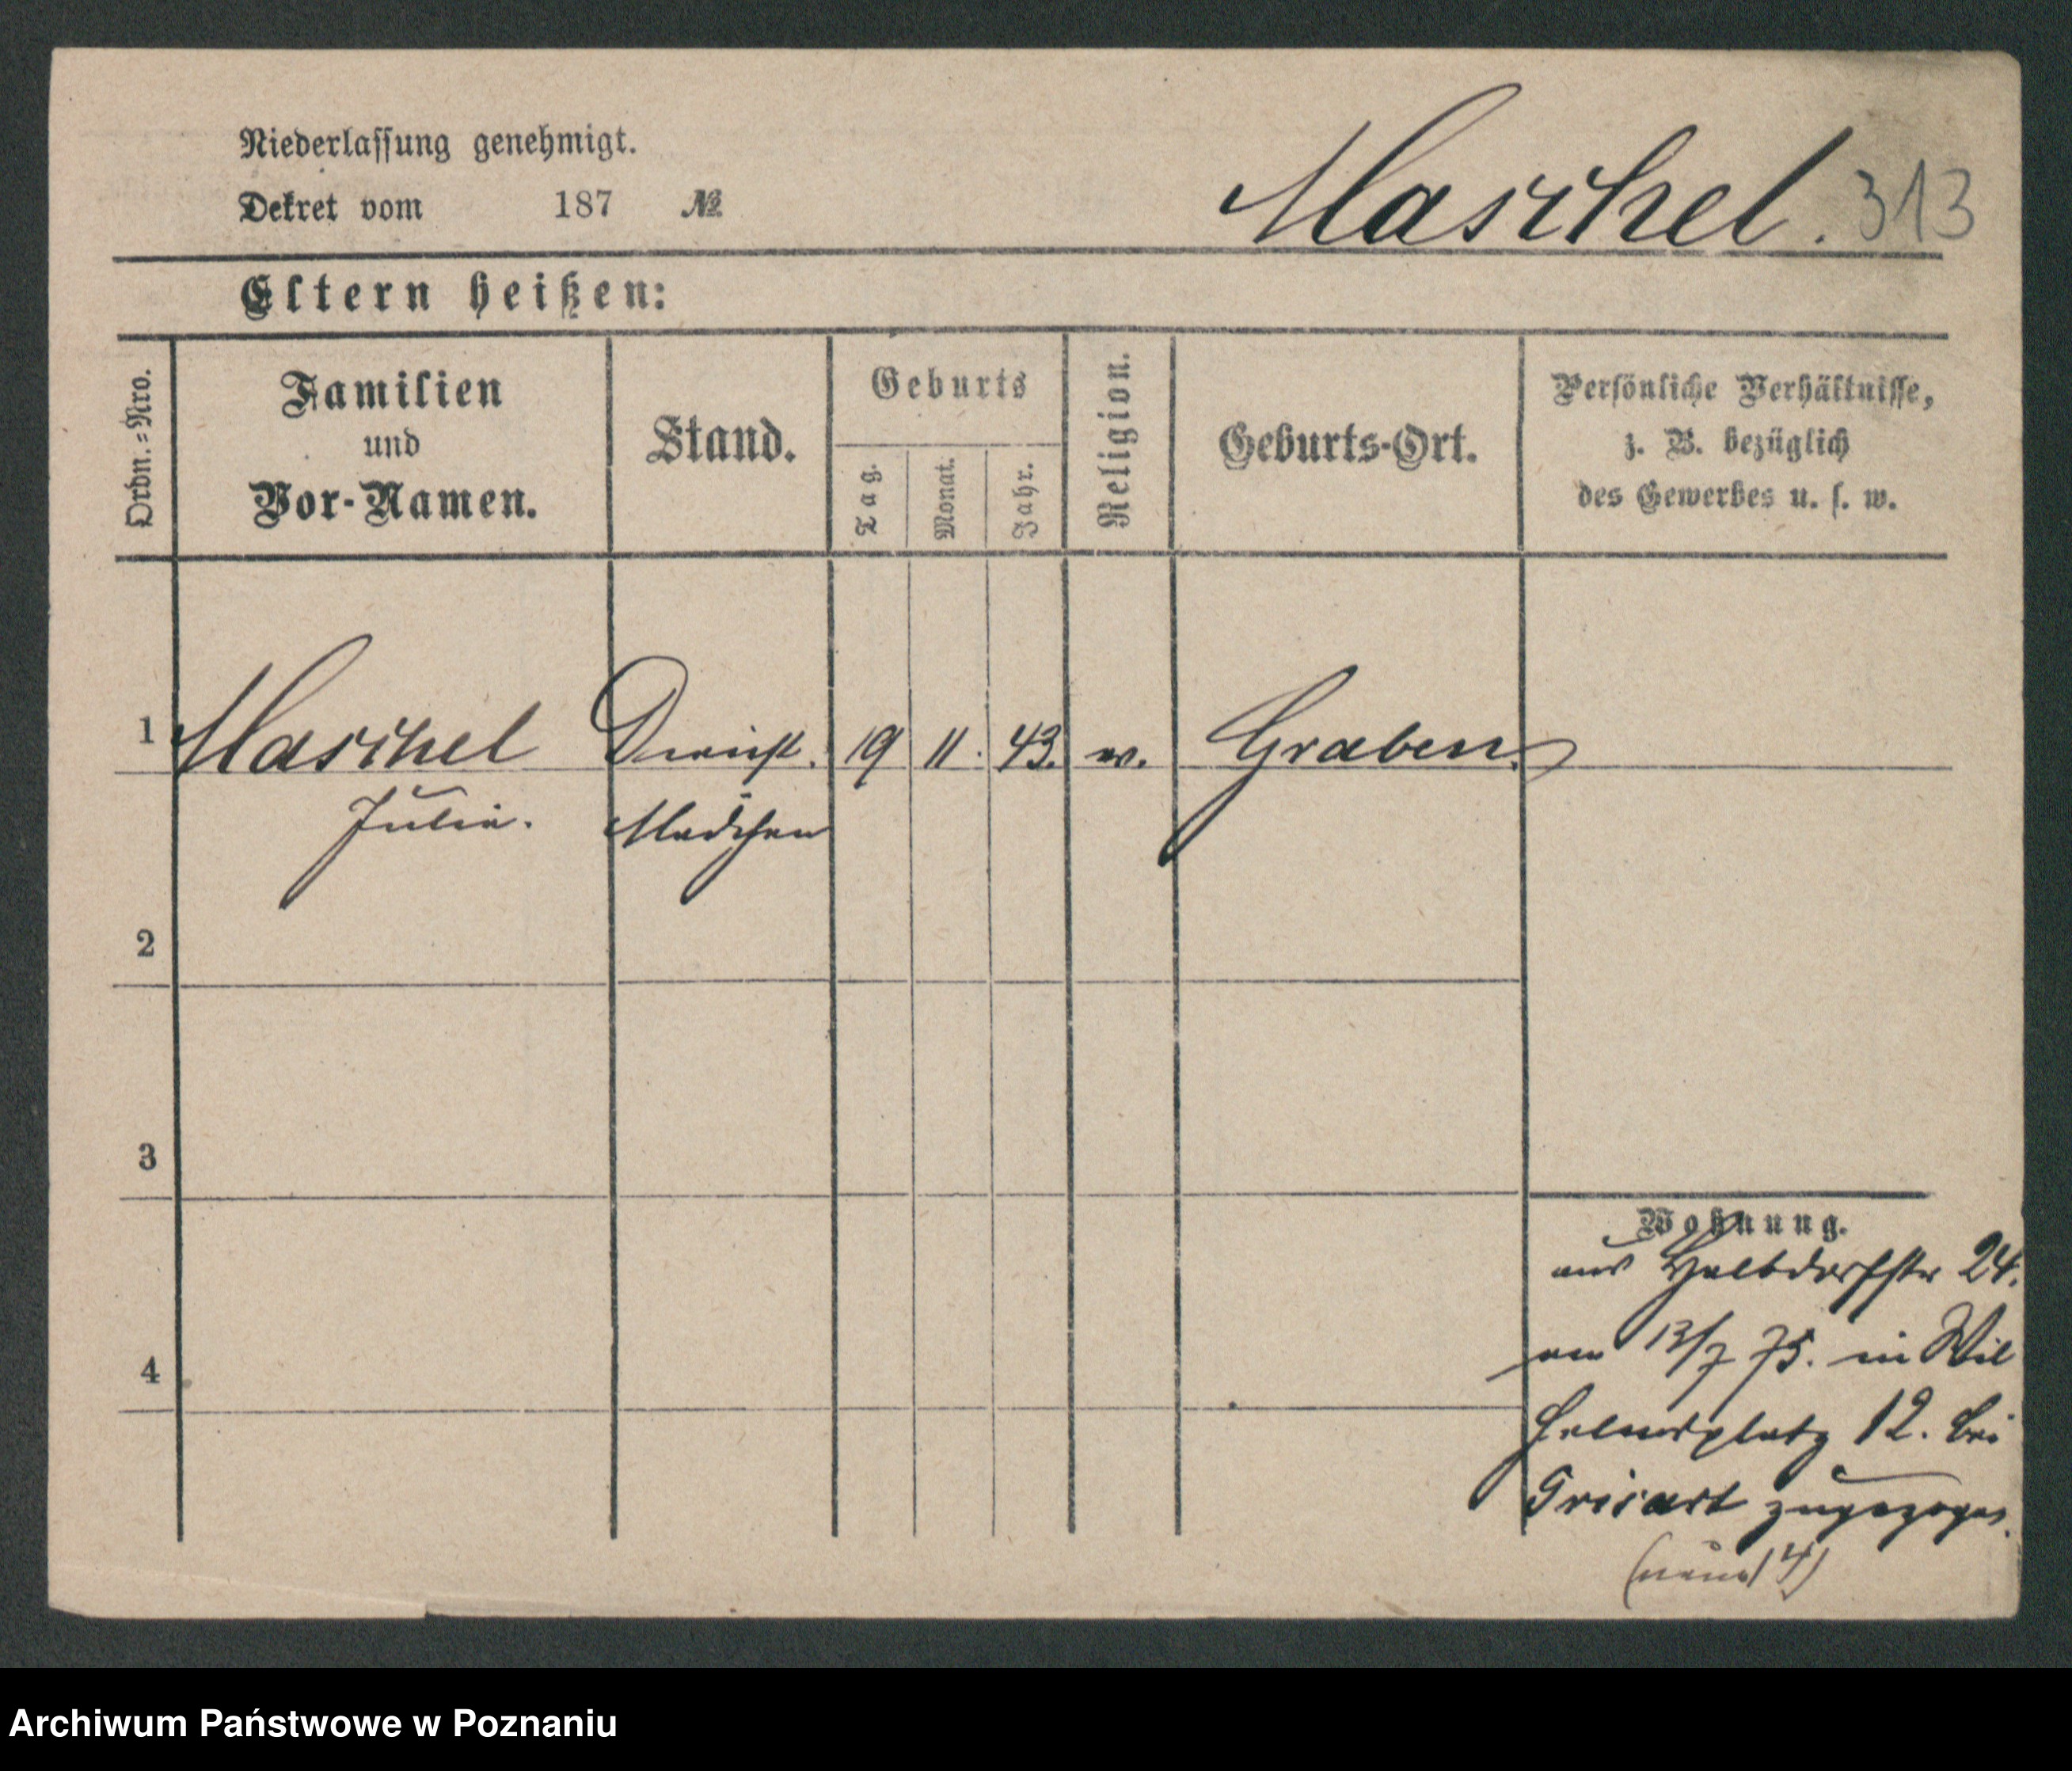 Niederlassung genehmigt.
Dekret vom 187 №
Maschel. 313
Eltern heißen:
Ordn.=Nro.
Familien
und
Vor-Namen.
Stand.
Geburts
Tag.
Monat.
Jahr.
Religion.
Geburts-Ort.
Persönliche Verhältnisse,
z. B. bezüglich
des Gewerbes u. s. w.
1 Maschel Dienst. 19 11. 43. Graben.
Julia. Mädchen
2
3
4
Wohnung.
aus Halbdorfstr 24.
am 13/7 75. in Wil
helmsplatz 12. bei
zugezogen.
Archiwum Państwowe w Poznaniu